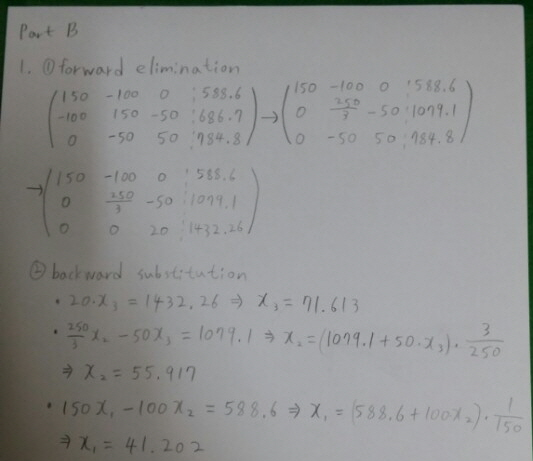 Part B
1. ① forward elimination
( 150 -100 0 ⋮ 588.6 ) → ( 150 -100 0 ⋮ 588.6 )
( -100 150 -50 ⋮ 686.7 ) ( 0 250/3 -50 ⋮ 1079.1 )
( 0 -50 50 ⋮ 784.8 ) ( 0 -50 50 ⋮ 784.8 )
→ ( 150 -100 0 ⋮ 588.6 )
( 0 250/3 -50 ⋮ 1079.1 )
( 0 0 20 ⋮ 1432.26 )
② backward substitution
• 20·x₃ = 1432.26 ⇒ x₃ = 71.613
• 250/3 x₂ - 50x₃ = 1079.1 ⇒ x₂ = (1079.1 + 50·x₃)· 3/250
⇒ x₂ = 55.917
• 150x₁ - 100x₂ = 588.6 ⇒ x₁ = (588.6 + 100x₂)· 1/150
⇒ x₁ = 41.202